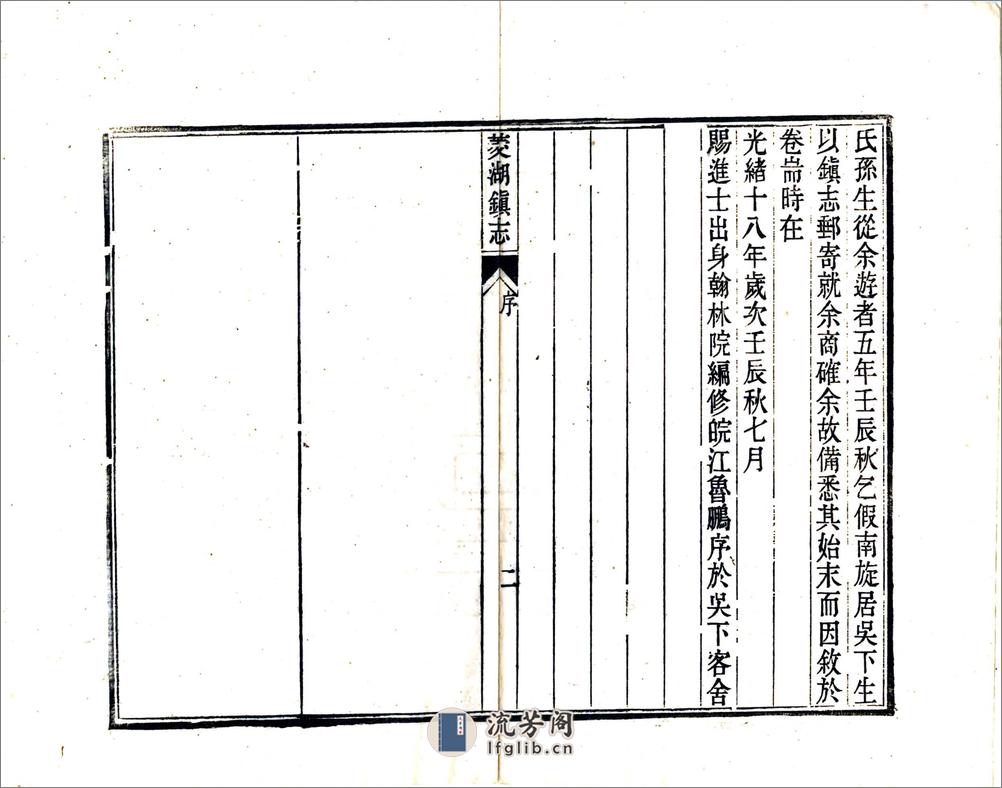 氏孫生從余遊者五年壬辰秋乞假南旋居吳下生
以鎭志郵寄就余商確余故備悉其始末而因敘於
卷耑時在
光緒十八年歲次壬辰秋七月
賜進士出身翰林院編修皖江魯鵬序於吳下客舍
菱湖鎭志
序
二
流芳阁
lfglib.cn